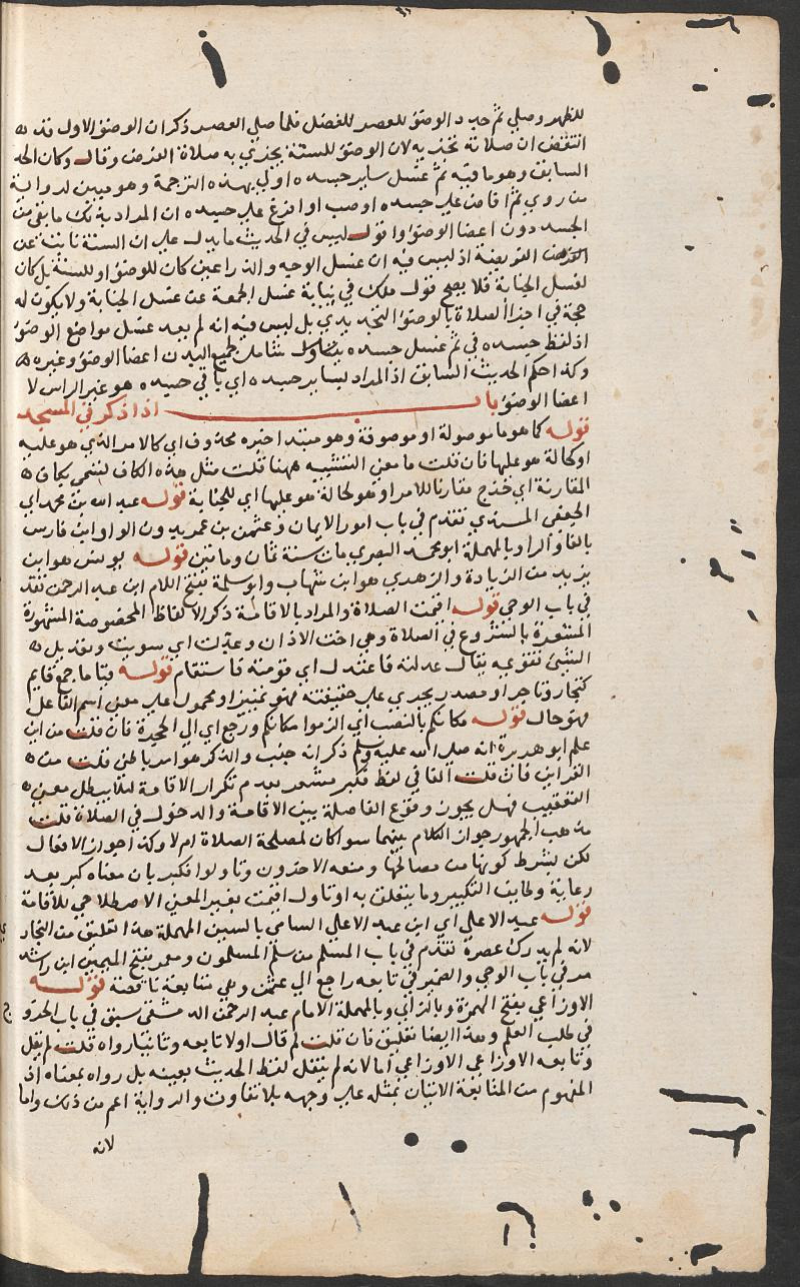 للظهر وصلى ثم جدد الوضوء للعصر للفضل فلما صلى العصر ذكر ان الوضوء الاول قد
انتقض ان صلاته تجزيه لان الوضوء للسنة يجزي به صلاة الفرض وقال وكان الحد
السابق وهو ما فيه ثم غسل ساير جسده اولى بهذه الترجمة وهو مبين لرواية
من روي ثم افاض علي جسده او صب او افرغ علي جسده ان المراد بذلك ما بقي من
الجسد دون اعضا الوضوء واقول ليس في الحديث ما يدل علي ان السنة نابته عن
الفرض اذ ليس فيه ان غسل الوجه والذراعين كان للوضوء او للسنة بل كان
لغسل الجنابة فلا يصح قول ملك في نيابة غسل الجمعة عن غسل الجنابة ولا يكون له
حجة في اجزا الصلاة بالوضوء التجديدي بل ليس فيه انه لم يعد غسل مواضع الوضوء
اذ لفظ جسده في ثم غسل جسده شامل لجميع البدن اعضا الوضوء وغيره
وكذا حكم الحديث السابق اذ المراد بساير جسده اي باقي جسده هو غير الراس لا
اعضا الوضوء باب اذا ذكر في المسجد
قوله كما هو ما موصولة او موصوفة وهو مبتدا خبره محذوف اي كالامر الذي هو عليه
او كحالة هو عليها فان قلت ما معني التشبيه ههنا قلت مثل هذه الكاف تسمي بكاف
المقارنة اي خرج مقارنا للامر او هو لحالة هو عليها اي للجنابة قوله عبد الله بن محمد اي
الجعفي المسندي تقدم في باب امور الايمان وعثمن بن عمر بدون الواو ابن فارس
بالفا والرا وبالمهملة ابو محمد البصري مات سنة ثمان وماتين قوله يونس هو ابن
يزيد من الزيادة والزهري هو ابن شهاب وابو سلمة بفتح اللام ابن عبد الرحمن تقد
في باب الوحي قوله اقيمت الصلاة والمراد بالاقامة ذكر الالفاظ المخصوصة المشهورة
المشعرة بالشروع في الصلاة وهي اخت الاذان وعدلت اي سويت وتعديل
الشيئ تقويمه يقال عدلته فاعتدل اي قومته فاستقام قوله قياما جمع قايم
كتجار وتاجر او مصدر يجري علي حقيقته فهو تمييز او محمول علي معني اسم الفاعل
فهو حال قوله مكانكم بالنصب اي الزموا مكانكم ورجع اي الي الحجرة فان قلت من اين
علم ابو هريرة انه صلى الله عليه وسلم ذكر انه جنب والذكر هو امر باطن قلت من
القراين فان قلت الفا في لفظ فكبر مشعر بعدم تكرار الاقامة لئلا يبطل معني
التعقيب فهل يجوز وقوع الفاصلة بين الاقامة والدخول في الصلاة قلت
مذهب الجمهور جواز الكلام بينهما سوا كان لمصلحة الصلاة ام لا وكذا جواز الافعال
لكن بشرط كونها من مصالحها ومنعه الاخرون وتاولوا فكبر بان معناه كبر بعد
رعاية وظايف التكبير وما يتعلق به او تاول اقيمت بغير المعني الاصطلاحي للاقامة
قوله عبد الاعلي اي ابن عبد الاعلي السامي بالسين المهملة هذا تعليق من البخار
لانه لم يدرك عصره تقدم في باب المسلم من سلم المسلمون ومعمر بفتح الميمين ابن راشد
مر في باب الوحي والضمير في تابعه راجع الي عثمن وهي متابعة ناقصة قوله
الاوزاعي بفتح الهمزة وبالزاي وبالمهملة الامام عبد الرحمن الدمشقي سبق في باب الخرو
في طلب العلم وهذا ايضا تعليق فان قلت لم قال اولا تابعه وثانيا رواه قلت لم يقل
وتابعه الاوزاعي اما لانه لم ينقل لفظ الحديث بعينه بل رواه بمعناه اذ
المفهوم من المتابعة الاتيان بمثله علي وجهه بلا تفاوت والرواية اعم من ذلك واما
لانه